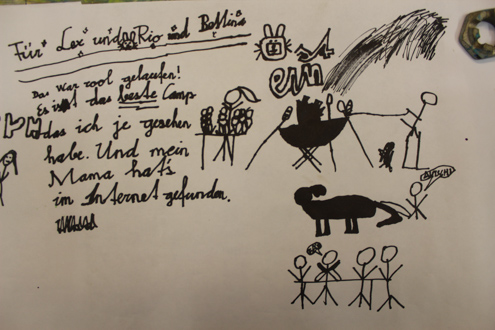 Für Lex und Rio und Bettina
Das war cool gelaufen!
Es ist das beste Camp
das ich je gesehen
habe. Und mein
Mama hat's
im Internet gefunden.
AUTSCH!